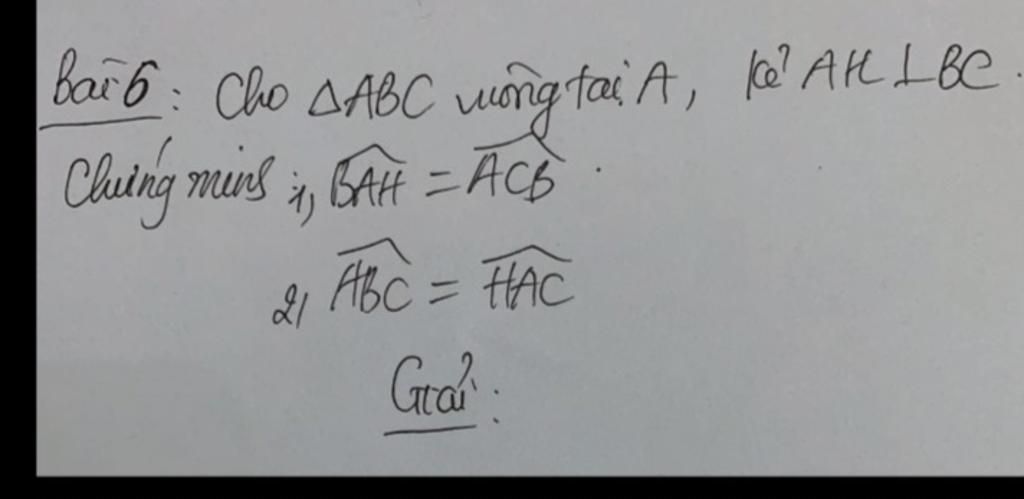 Bài 6: Cho △ABC vuông tại A, kẻ AH ⊥ BC.
Chứng minh: 1, \widehat{BAH} = \widehat{ACB}.
2, \widehat{ABC} = \widehat{HAC}
Giải: